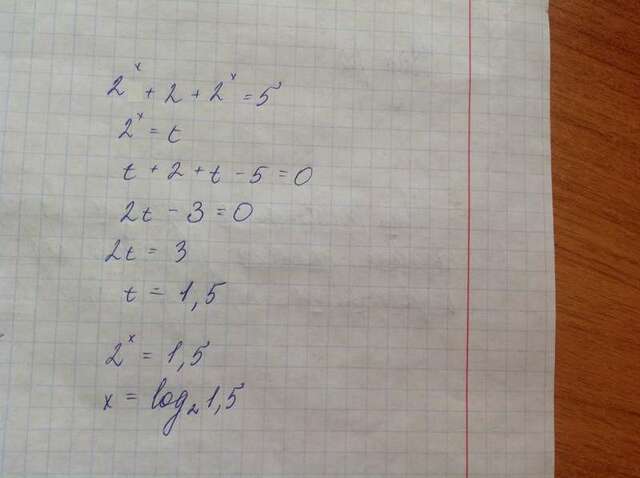 2ˣ + 2 + 2ˣ = 5
2ˣ = t
t + 2 + t - 5 = 0
2t - 3 = 0
2t = 3
t = 1,5
2ˣ = 1,5
x = log₂1,5